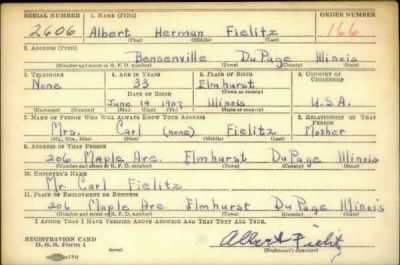 SERIAL NUMBER 1. NAME (Print) ORDER NUMBER
2606 Albert Herman Fielitz 166
(First) (Middle) (Last)
2. ADDRESS (Print)
Bensenville DuPage Illinois
(Number and street or R. F. D. number) (Town) (County) (State)
3. TELEPHONE 4. AGE IN YEARS 5. PLACE OF BIRTH 6. COUNTRY OF CITIZENSHIP
None 33 Elmhurst
DATE OF BIRTH (Town or county)
June 19 1907 Illinois U.S.A.
(Exchange) (Number) (Mo.) (Day) (Yr.) (State or country)
7. NAME OF PERSON WHO WILL ALWAYS KNOW YOUR ADDRESS 8. RELATIONSHIP OF THAT PERSON
Mrs. Carl (none) Fielitz Mother
(Mr., Mrs., Miss) (First) (Middle) (Last)
9. ADDRESS OF THAT PERSON
206 Maple Ave. Elmhurst DuPage Illinois
(Number and street or R. F. D. number) (Town) (County) (State)
10. EMPLOYER'S NAME
Mr. Carl Fielitz
11. PLACE OF EMPLOYMENT OR BUSINESS
206 Maple Ave. Elmhurst DuPage Illinois
(Number and street or R. F. D. number) (Town) (County) (State)
I AFFIRM THAT I HAVE VERIFIED ABOVE ANSWERS AND THAT THEY ARE TRUE.
REGISTRATION CARD
D. S. S. Form 1 Albert Fielitz
(Registrant's signature)